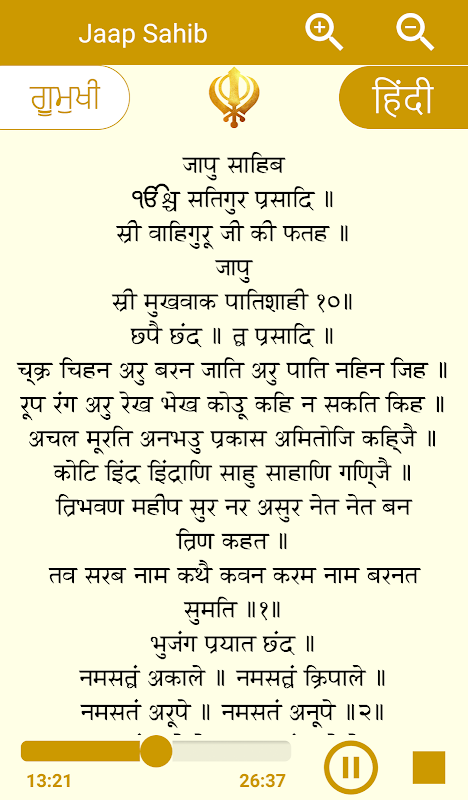 Jaap Sahib
ਗੁਰਮੁਖੀ
हिंदी
जापु साहिब
सतिगुर प्रसादि ॥
स्री वाहिगुरू जी की फतह ॥
जापु
स्री मुखवाक पातिशाही १०॥
छपै छंद ॥ त्व प्रसादि ॥
च्क्र चिहन अरु बरन जाति अरु पाति नहिन जिह ॥
रूप रंग अरु रेख भेख कोउू कहि न सकति किह ॥
अचल मूरति अनभउ प्रकास अमितोजि कहि्जै ॥
कोटि इिंद्र इिंद्राणि साहु साहाणि गणि्जै ॥
त्रिभवण महीप सुर नर असुर नेत नेत बन
त्रिण कहत ॥
तव सरब नाम कथै कवन करम नाम बरनत
सुमति ॥१॥
भुजंग प्रयात छंद ॥
नमसत्वं अकाले ॥ नमसत्वं क्रिपाले ॥
नमसतं अरूपे ॥ नमसतं अनूपे ॥२॥
13:21
26:37